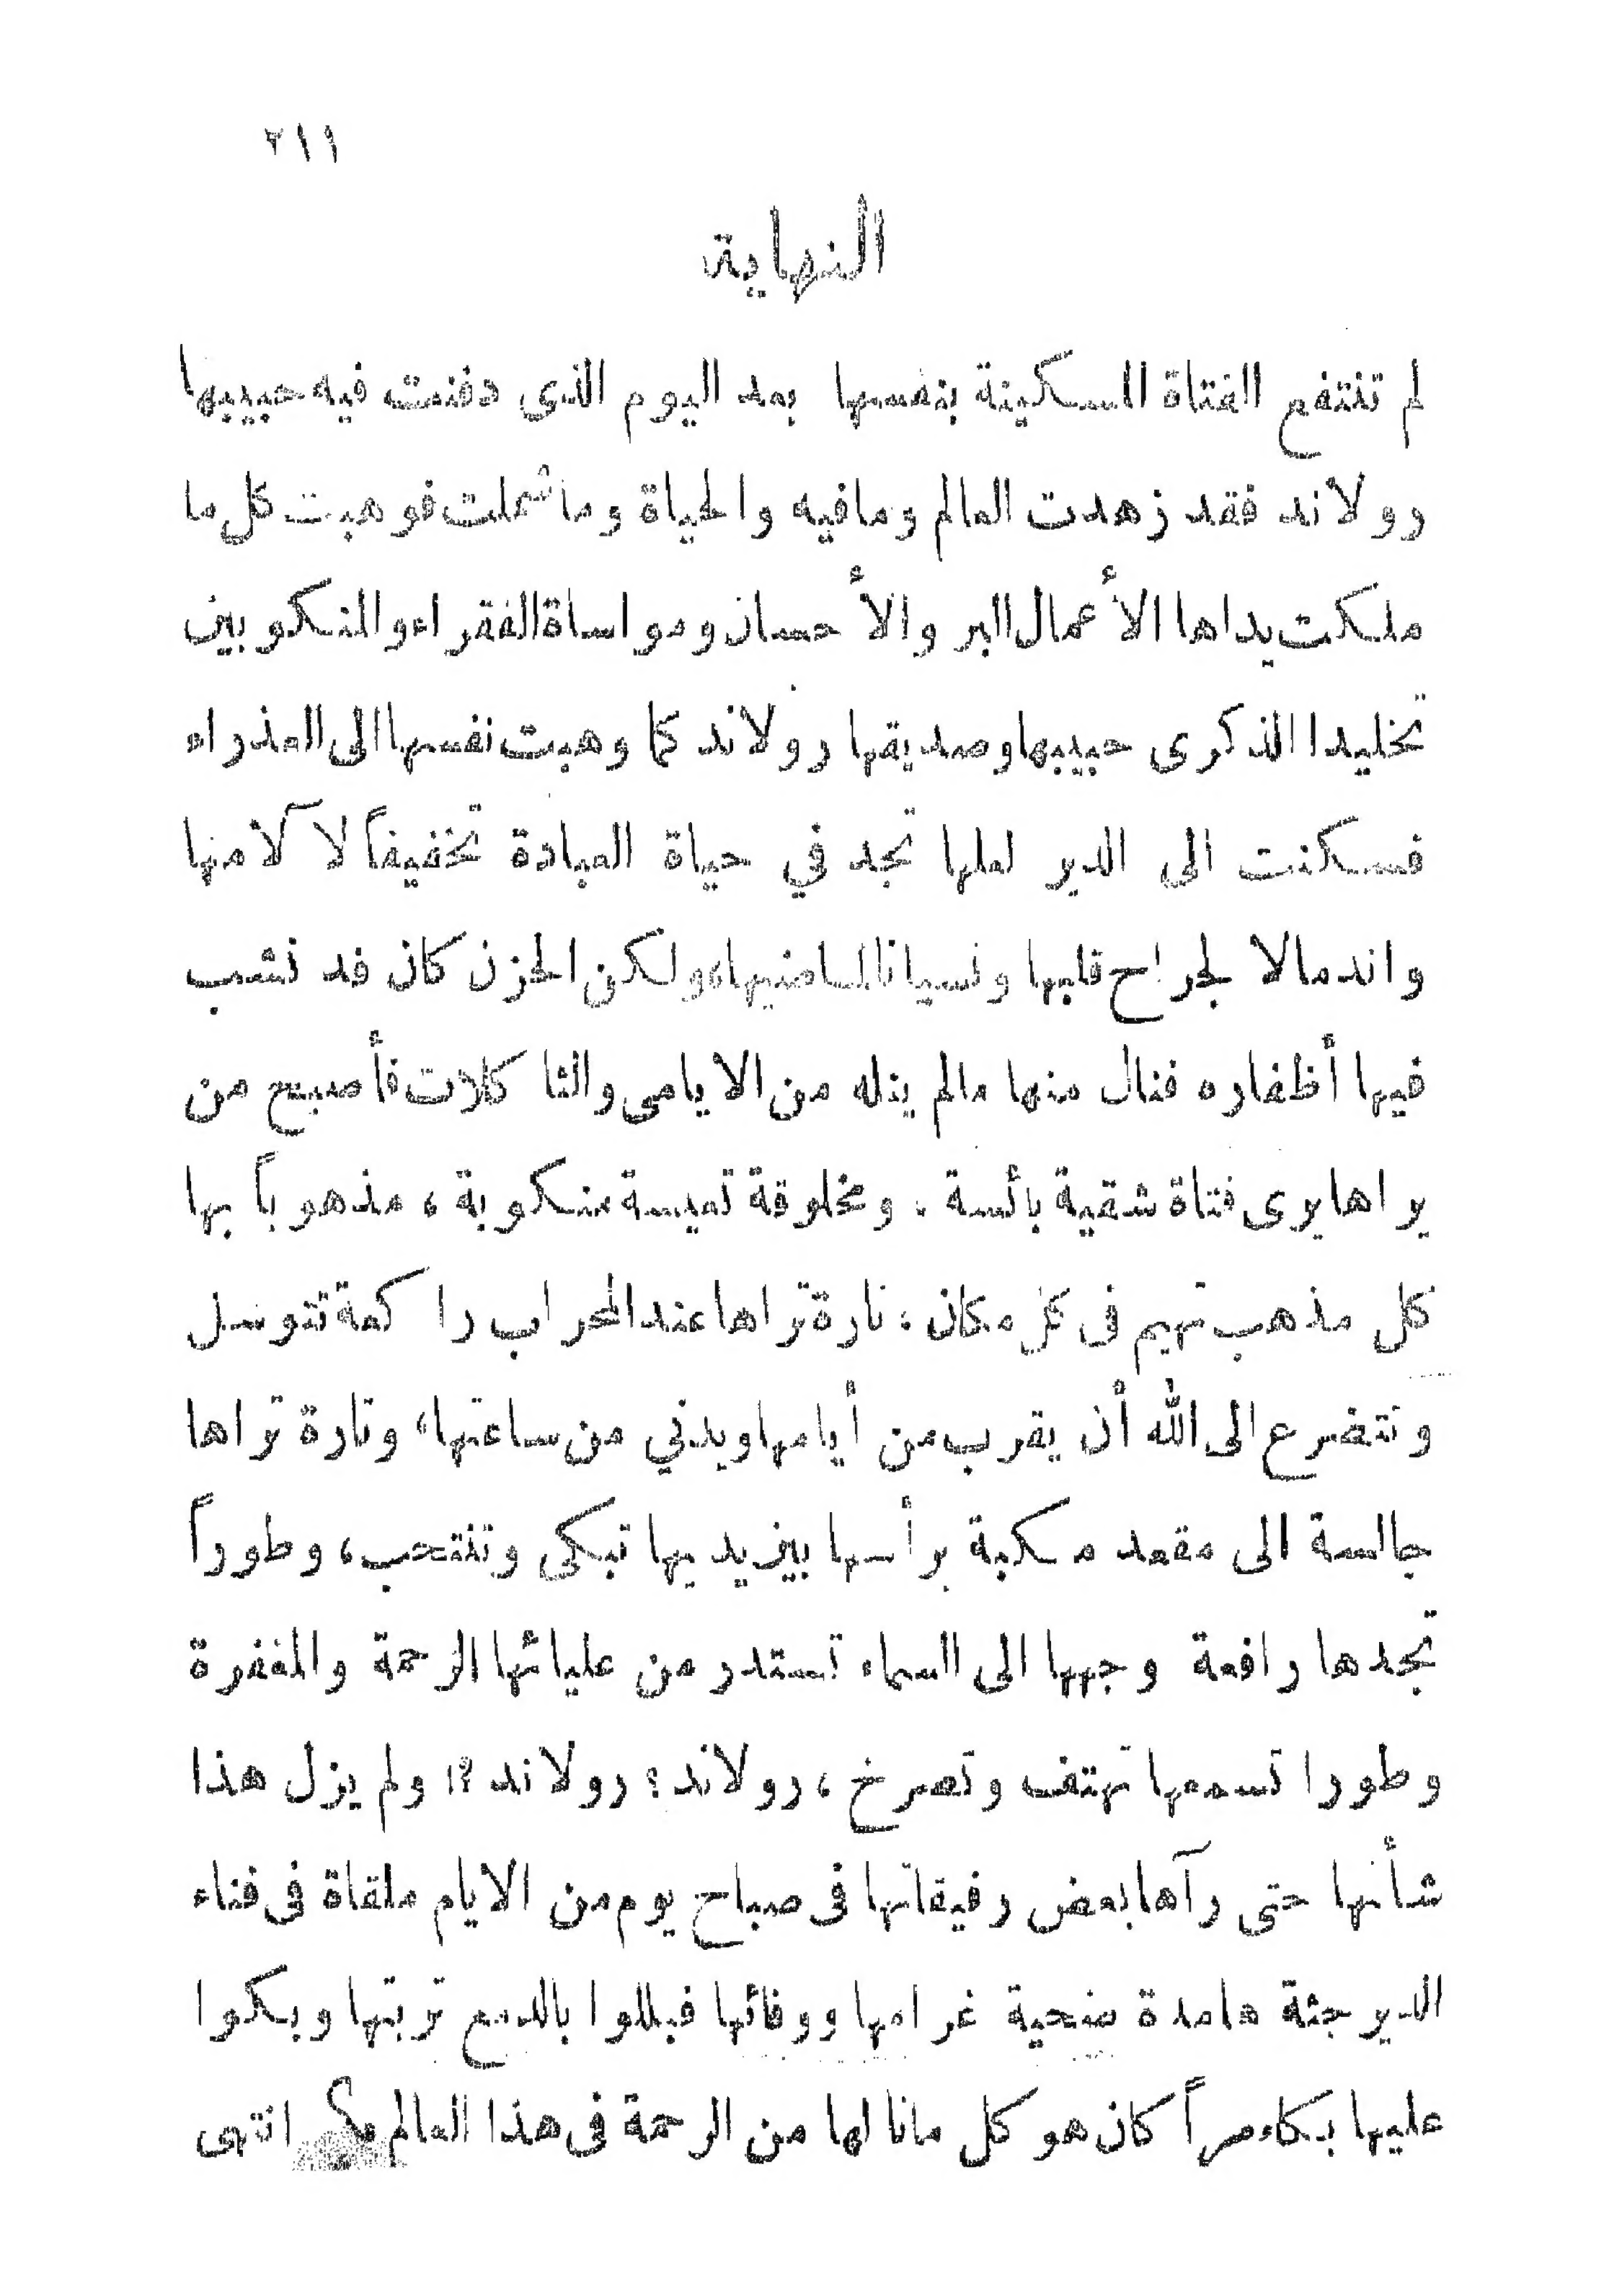 ٢١١
النهاية
لم تنتفع الفتاة المسكينة بنفسها بعد اليوم الذى دفنت فيه حبيبها
رولاند فقد زهدت العالم ومافيه والحياة وما شملت فوهبت كل ما
ملكت يداها الأعمال البر والأحسان ومواساة الفقراء والمنكوبين
تخليدا الذكرى حبيبها وصديقها رولاند كما وهبت نفسها الى العذراء
فسكنت الى الدير لعلها تجد في حياة العبادة تخفيفاً لآلامها
واندمالا لجراح قلبها ونسيانا لماضيها، ولكن الحزن كان قد نشب
فيها أظفاره فنال منها مالم ينله من الايامى والثاكلات فأصبح من
يراها يرى فتاة شقية بائسة، ومخلوقة تعيسة منكوبة، مذهوباً بها
كل مذهب تهيم فى كل مكان، تارة تراها عند المحراب راكعة تتوسل
وتتضرع الى الله أن يقرب من أيامها ويدني من ساعتها، وتارة تراها
جالسة الى مقعد مكبة برأسها بين يديها تبكى وتنتحب، وطوراً
تجدها رافعة وجهها الى السماء تستدر من عليائها الرحمة والمغفرة
وطورا تسمعها تهتف وتصرخ، رولاند؟ رولاند؟! ولم يزل هذا
شأنها حتى رآها بعض رفيقاتها فى صباح يوم من الايام ملقاة فى فناء
الدير جثة هامدة ضحية غرامها ووفائها فبللوا بالدمع تربتها وبكوا
عليها بكاء مراً كان هو كل مانالها من الرحمة فى هذا العالم انتهى